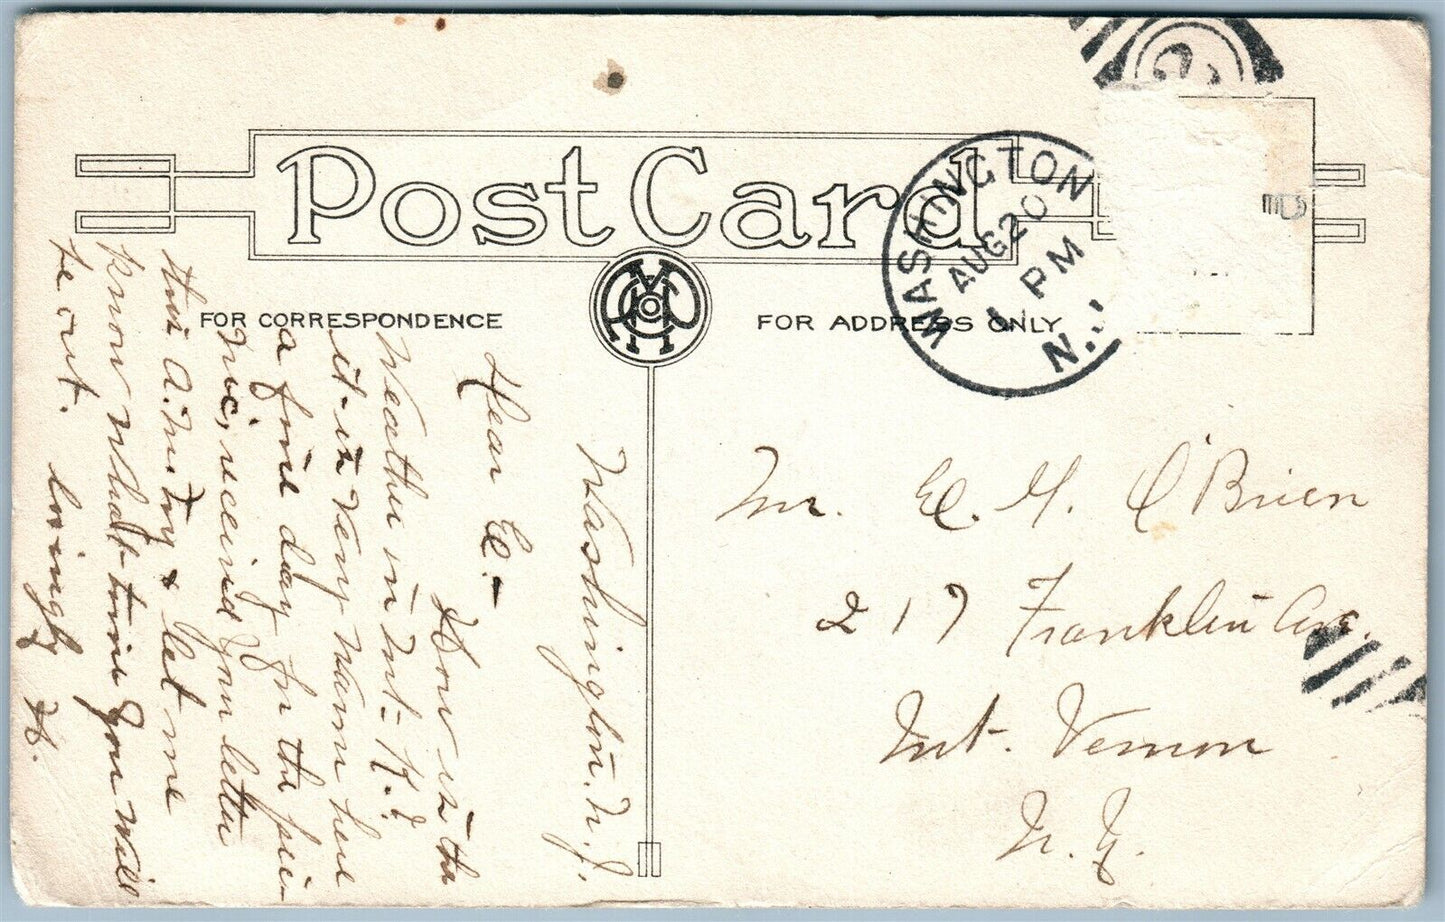 Post Card
FOR CORRESPONDENCE
FOR ADDRESS ONLY
WASHINGTON
AUG 20
1 PM
N.J.
Washington. N. J.
Dear Ed. –
How is the
Weather in Mt. V.?
it is very warm here
a fine day for the pic-
nic, received your letter
this A.M. Try & let me
know what time you will
be out.
lovingly
H.
Mr. Ed. M. O'Brien
217 Franklin Ave.
Mt. Vernon
N. Y.